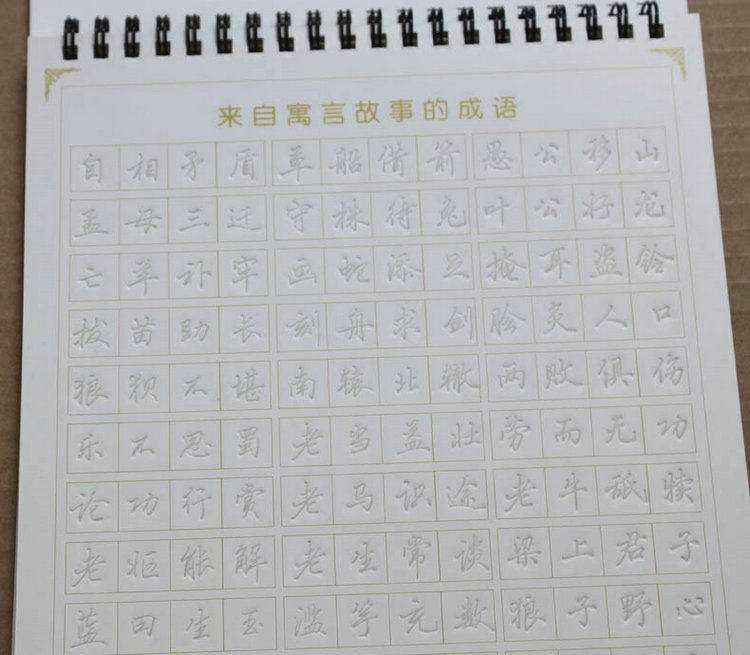 来自寓言故事的成语
自相矛盾 草船借箭 愚公移山
孟母三迁 守株待兔 叶公好龙
亡羊补牢 画蛇添足 掩耳盗铃
拔苗助长 刻舟求剑 脍炙人口
狼狈不堪 南辕北辙 两败俱伤
乐不思蜀 老当益壮 劳而无功
论功行赏 老马识途 老牛舐犊
老妪能解 老生常谈 梁上君子
蓝田生玉 滥竽充数 狼子野心